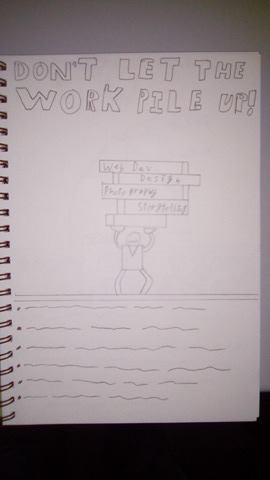 DON'T LET THE
WORK PILE UP!
Web Dev
Design
Photography
Storytelling